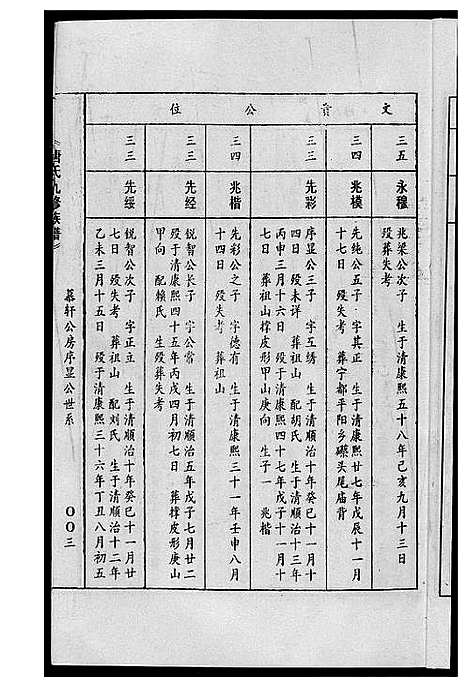 文贲公位
三五 永穆
兆梁公次子 生于清康熙五十八年己亥九月十三日
殁葬失考
三四 兆模
先纯公五子 字其正 生于清康熙廿七年戊辰十一月
十七日 殁失考 葬宁都平阳乡磜头尾庙背
三三 先彩
序显公三子 字互绣 生于清顺治十年癸巳十一月十
四日 殁未详 葬祖山 配胡氏 生于清顺治十三年
丙申三月十六日 殁于清康熙四十七年戊子十一月十
七日 葬祖山撑皮形甲山庚向 生子一 兆楷
三四 兆楷
先彩公之子 字德有 生于清康熙三十一年壬申八月
十四日 殁失考 葬祖山
三三 先经
锐智公长子 字公常 生于清顺治五年戊子七月廿二
殁于清康熙四十五年丙戌四月初七日 葬撑皮形庚山
甲向 配赖氏 生殁葬失考
三三 先绥
锐智公次子 字正立 生于清顺治十年癸巳十一月廿
七日 殁失考 葬祖山 配刘氏 生于清顺治十二年
乙未三月十五日 殁于清康熙三十六年丁丑八月初五
氏九修族谱
慕轩公房序显公世系
〇〇三